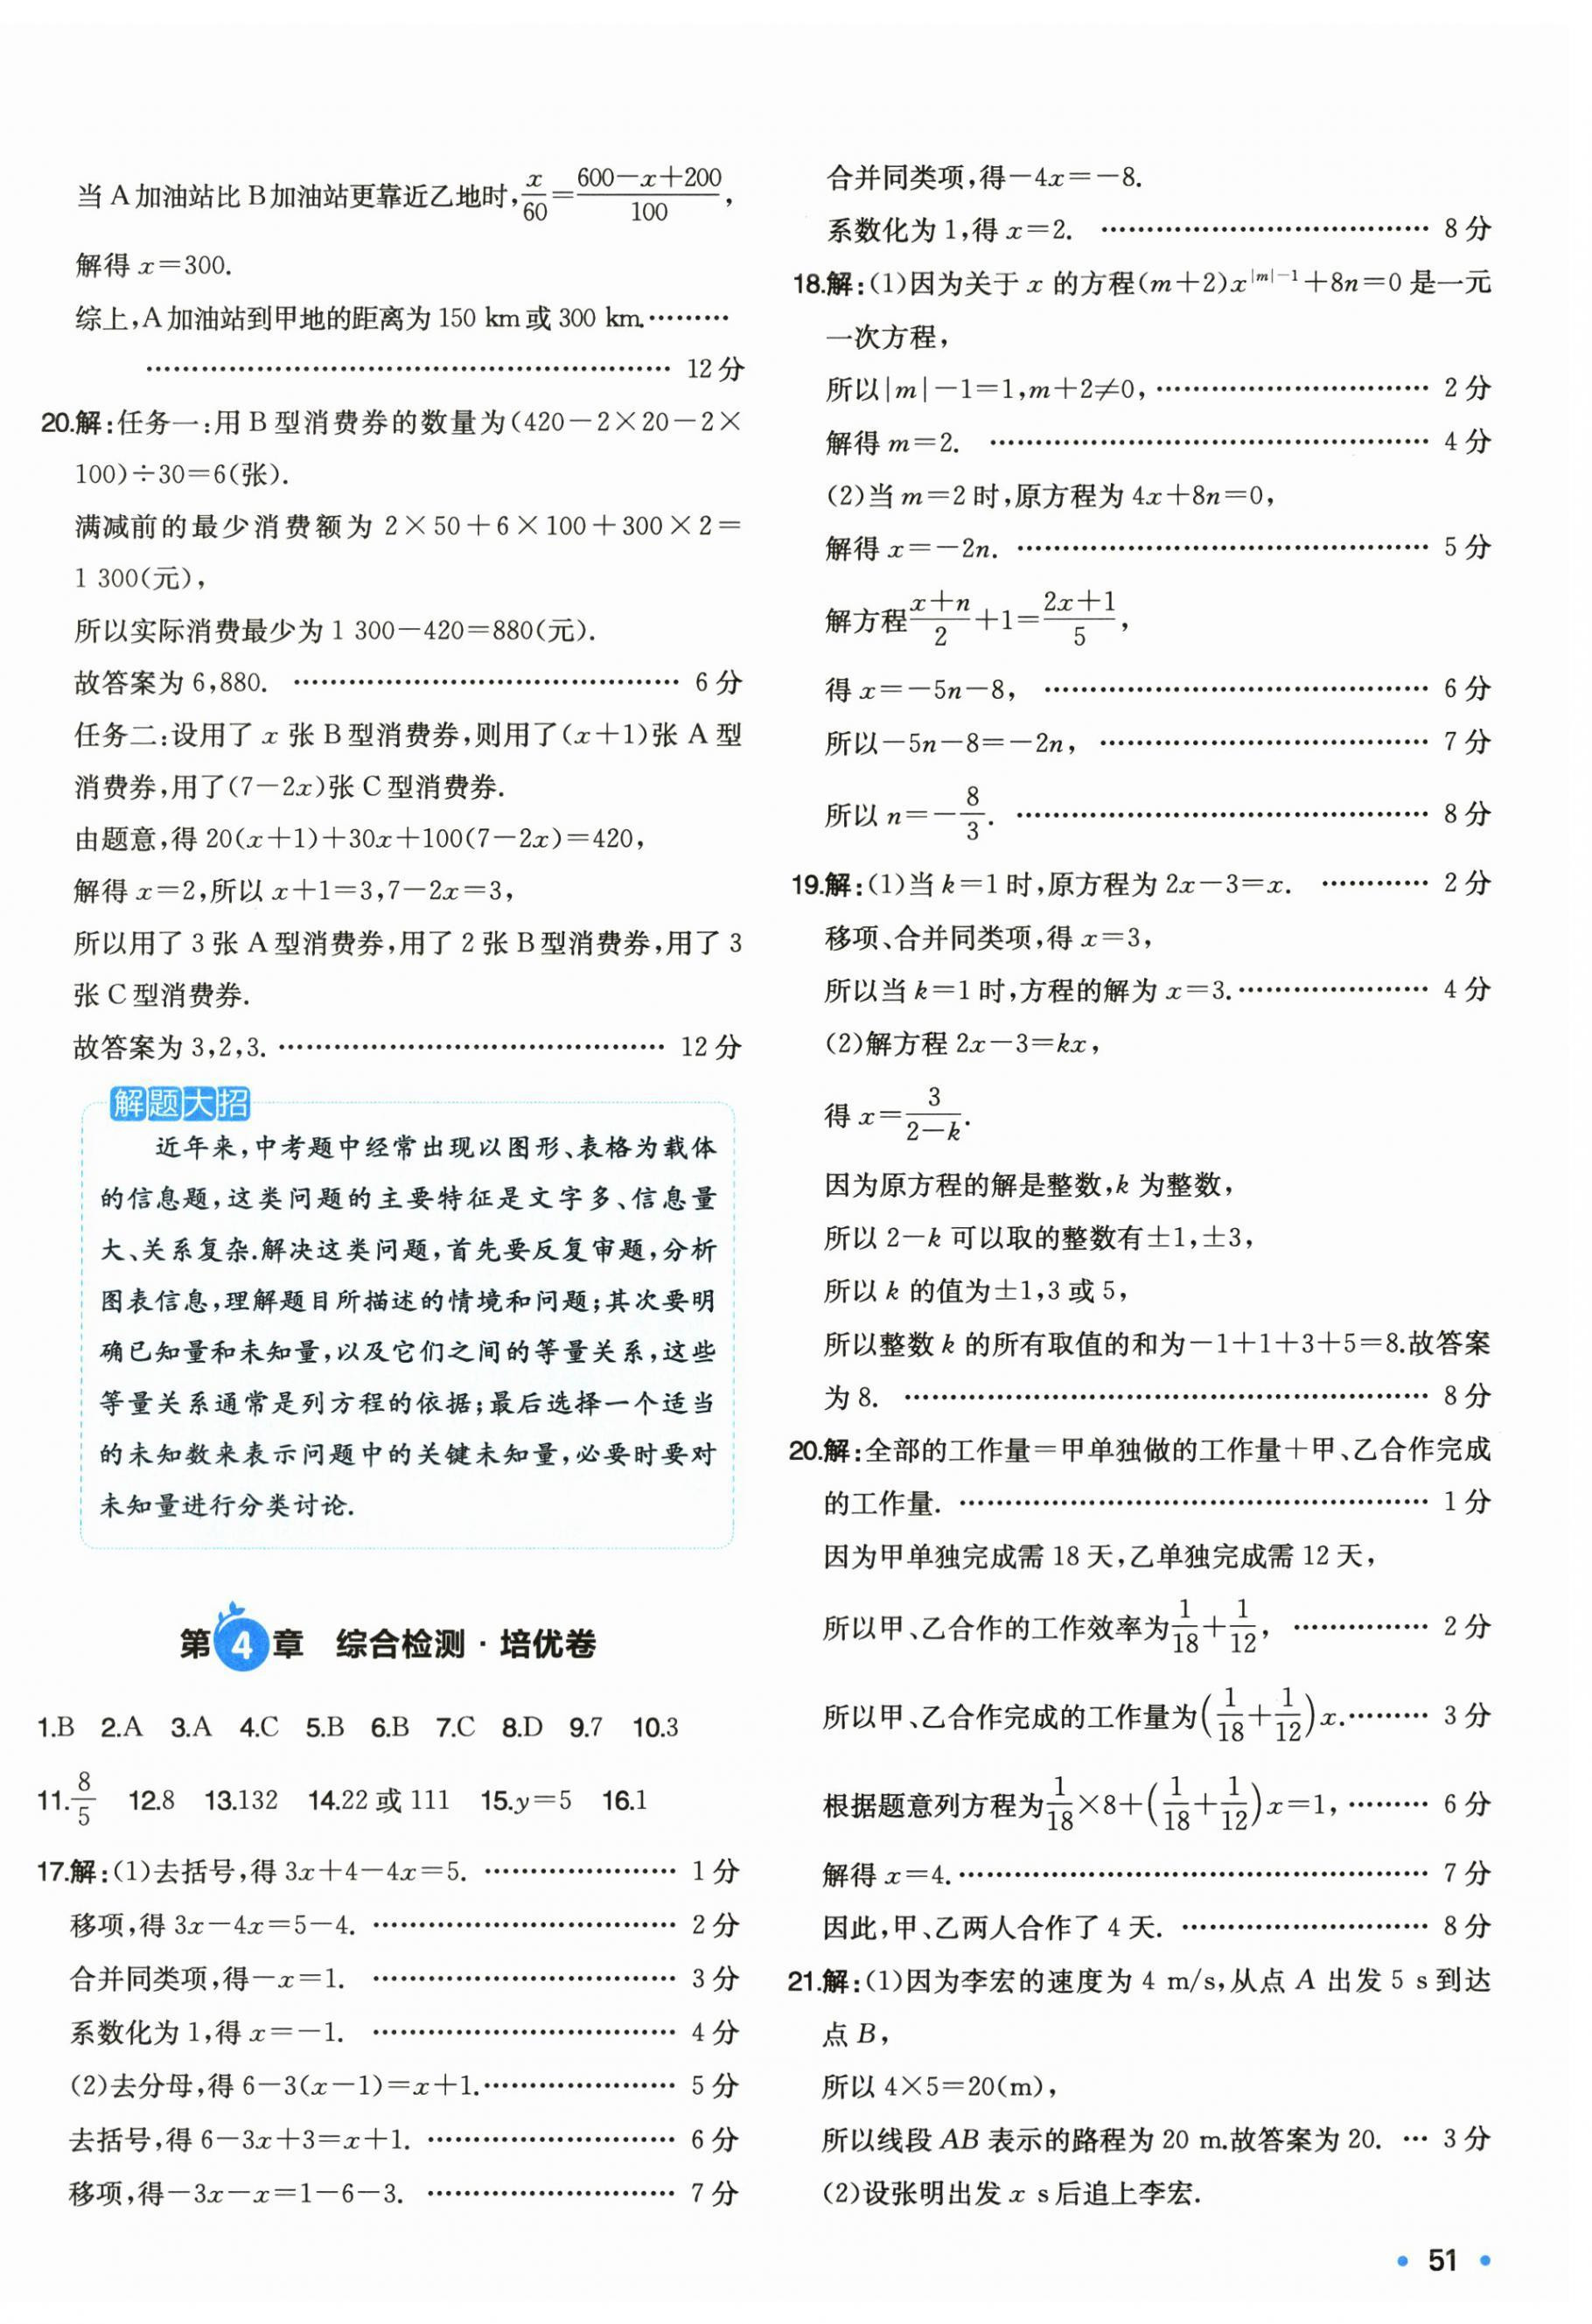 当 A 加油站比 B 加油站更靠近乙地时,x/60=(600-x+200)/100,
解得 x=300.
综上,A 加油站到甲地的距离为 150 km 或 300 km.………
………………………………………………… 12 分
20.解:任务一:用 B 型消费券的数量为(420-2×20-2×
100)÷30=6(张).
满减前的最少消费额为 2×50+6×100+300×2=
1 300(元),
所以实际消费最少为 1 300-420=880(元).
故答案为 6,880. …………………………………… 6 分
任务二:设用了 x 张 B 型消费券,则用了(x+1)张 A 型
消费券,用了(7-2x)张 C 型消费券.
由题意,得 20(x+1)+30x+100(7-2x)=420,
解得 x=2,所以 x+1=3,7-2x=3,
所以用了 3 张 A 型消费券,用了 2 张 B 型消费券,用了 3
张 C 型消费券.
故答案为 3,2,3. …………………………………… 12 分
解题大招
近年来,中考题中经常出现以图形、表格为载体
的信息题,这类问题的主要特征是文字多、信息量
大、关系复杂.解决这类问题,首先要反复审题,分析
图表信息,理解题目所描述的情境和问题;其次要明
确已知量和未知量,以及它们之间的等量关系,这些
等量关系通常是列方程的依据;最后选择一个适当
的未知数来表示问题中的关键未知量,必要时要对
未知量进行分类讨论.
第4章 综合检测·培优卷
1.B 2.A 3.A 4.C 5.B 6.B 7.C 8.D 9.7 10.3
11.8/5 12.8 13.132 14.22 或 111 15.y=5 16.1
17.解:(1)去括号,得 3x+4-4x=5. ………………… 1 分
移项,得 3x-4x=5-4. …………………………… 2 分
合并同类项,得-x=1. …………………………… 3 分
系数化为 1,得 x=-1. …………………………… 4 分
(2)去分母,得 6-3(x-1)=x+1.………………… 5 分
去括号,得 6-3x+3=x+1. ……………………… 6 分
移项,得-3x-x=1-6-3. ……………………… 7 分
合并同类项,得-4x=-8.
系数化为 1,得 x=2. ……………………………… 8 分
18.解:(1)因为关于 x 的方程(m+2)x^{|m|-1}+8n=0 是一元
一次方程,
所以|m|-1=1,m+2≠0, ………………………… 2 分
解得 m=2. ………………………………………… 4 分
(2)当 m=2 时,原方程为 4x+8n=0,
解得 x=-2n. ……………………………………… 5 分
解方程(x+n)/2+1=(2x+1)/5,
得 x=-5n-8, …………………………………… 6 分
所以-5n-8=-2n, ……………………………… 7 分
所以 n=-8/3. ……………………………………… 8 分
19.解:(1)当 k=1 时,原方程为 2x-3=x. ………… 2 分
移项、合并同类项,得 x=3,
所以当 k=1 时,方程的解为 x=3.………………… 4 分
(2)解方程 2x-3=kx,
得 x=3/(2-k).
因为原方程的解是整数,k 为整数,
所以 2-k 可以取的整数有±1,±3,
所以 k 的值为±1,3 或 5,
所以整数 k 的所有取值的和为-1+1+3+5=8.故答案
为 8. ………………………………………………… 8 分
20.解:全部的工作量=甲单独做的工作量+甲、乙合作完成
的工作量. …………………………………………… 1 分
因为甲单独完成需 18 天,乙单独完成需 12 天,
所以甲、乙合作的工作效率为1/18+1/12, …………… 2 分
所以甲、乙合作完成的工作量为(1/18+1/12)x.……… 3 分
根据题意列方程为1/18×8+(1/18+1/12)x=1, ……… 6 分
解得 x=4.…………………………………………… 7 分
因此,甲、乙两人合作了 4 天. ……………………… 8 分
21.解:(1)因为李宏的速度为 4 m/s,从点 A 出发 5 s 到达
点 B,
所以 4×5=20(m),
所以线段 AB 表示的路程为 20 m.故答案为 20. … 3 分
(2)设张明出发 x s 后追上李宏.
• 51 •